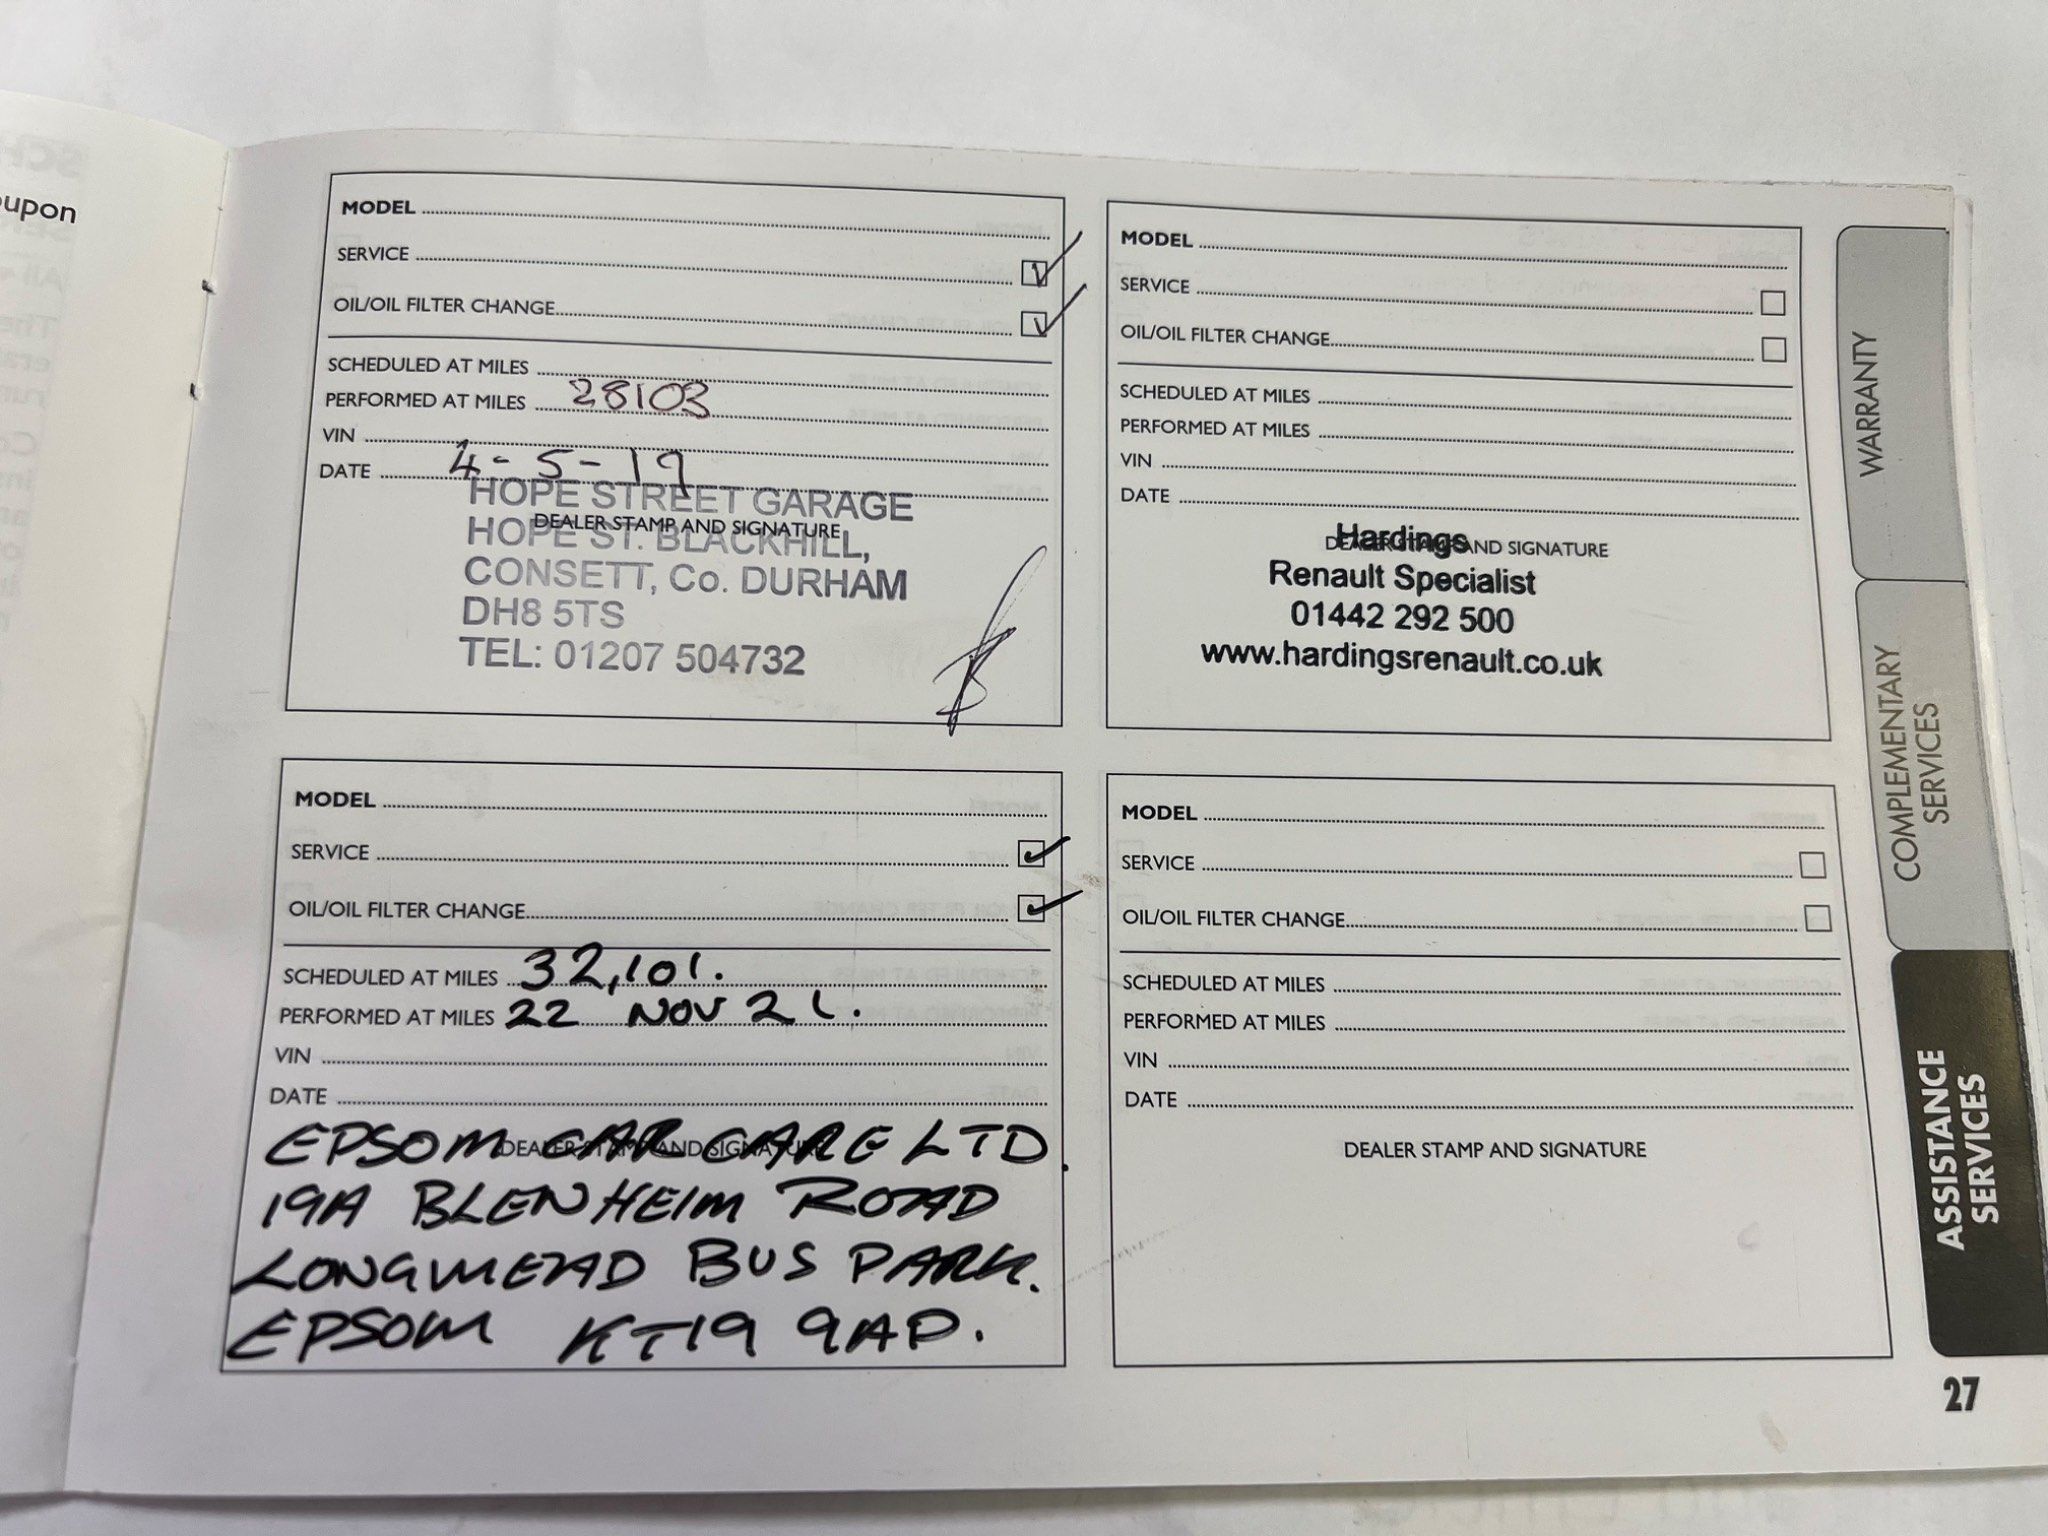 oupon
MODEL
SERVICE
OIL/OIL FILTER CHANGE
SCHEDULED AT MILES
PERFORMED AT MILES 28103
VIN
DATE 4-5-19
DEALER STAMP AND SIGNATURE
HOPE STREET GARAGE
HOPE ST. BLACKHILL,
CONSETT, Co. DURHAM
DH8 5TS
TEL: 01207 504732
MODEL
SERVICE
OIL/OIL FILTER CHANGE
SCHEDULED AT MILES
PERFORMED AT MILES
VIN
DATE
DEALER STAMP AND SIGNATURE
Hardings
Renault Specialist
01442 292 500
www.hardingsrenault.co.uk
MODEL
SERVICE
OIL/OIL FILTER CHANGE
SCHEDULED AT MILES 32,101.
PERFORMED AT MILES 22 NOV 21.
VIN
DATE
DEALER STAMP AND SIGNATURE
EPSOM CAR CARE LTD.
19A BLENHEIM ROAD
LONGMEAD BUS PARK.
EPSOM KT19 9AP.
MODEL
SERVICE
OIL/OIL FILTER CHANGE
SCHEDULED AT MILES
PERFORMED AT MILES
VIN
DATE
DEALER STAMP AND SIGNATURE
WARRANTY
COMPLEMENTARY
SERVICES
ASSISTANCE
SERVICES
27